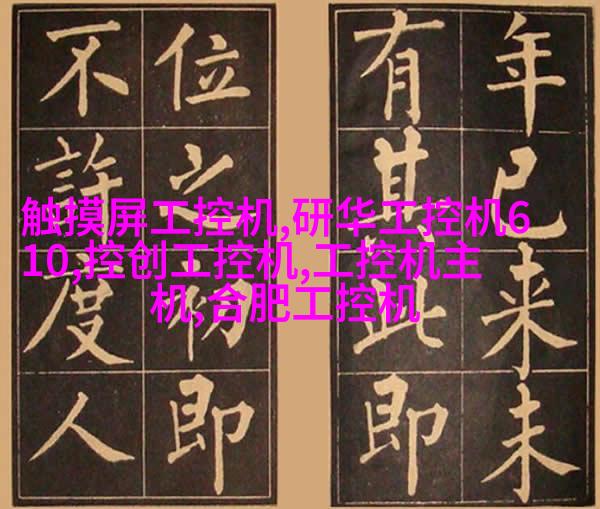 触摸屏工控机,研华工控机6
10,控创工控机,工控机主
机,合肥工控机
年已来未
有其此即
位之初即
不許度人